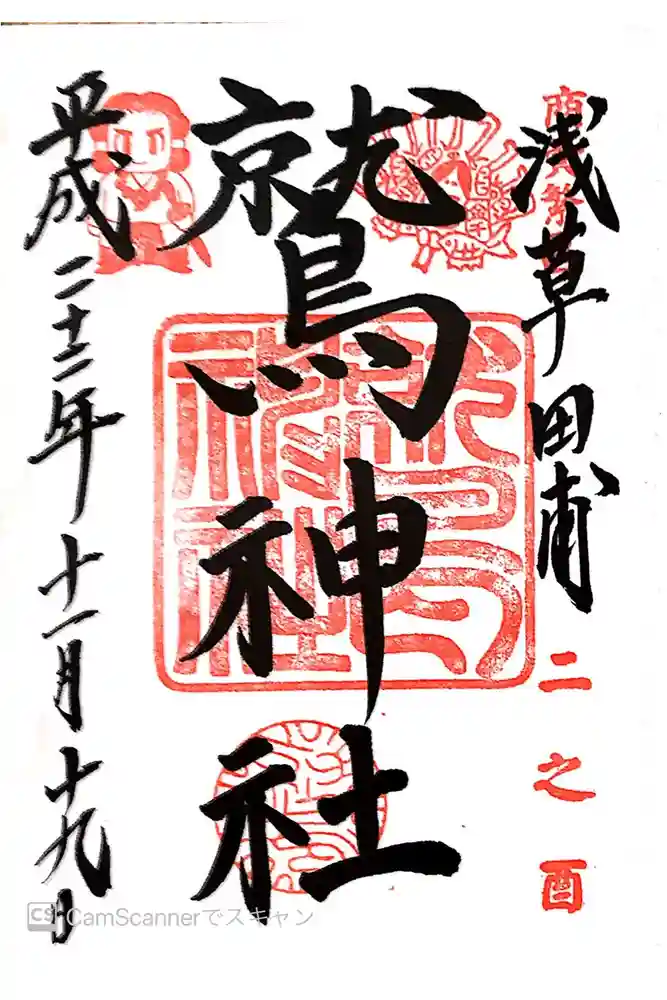 浅草田甫
二之酉
鷲神社
平成二十二年十一月十九日
CS CamScannerでスキャン